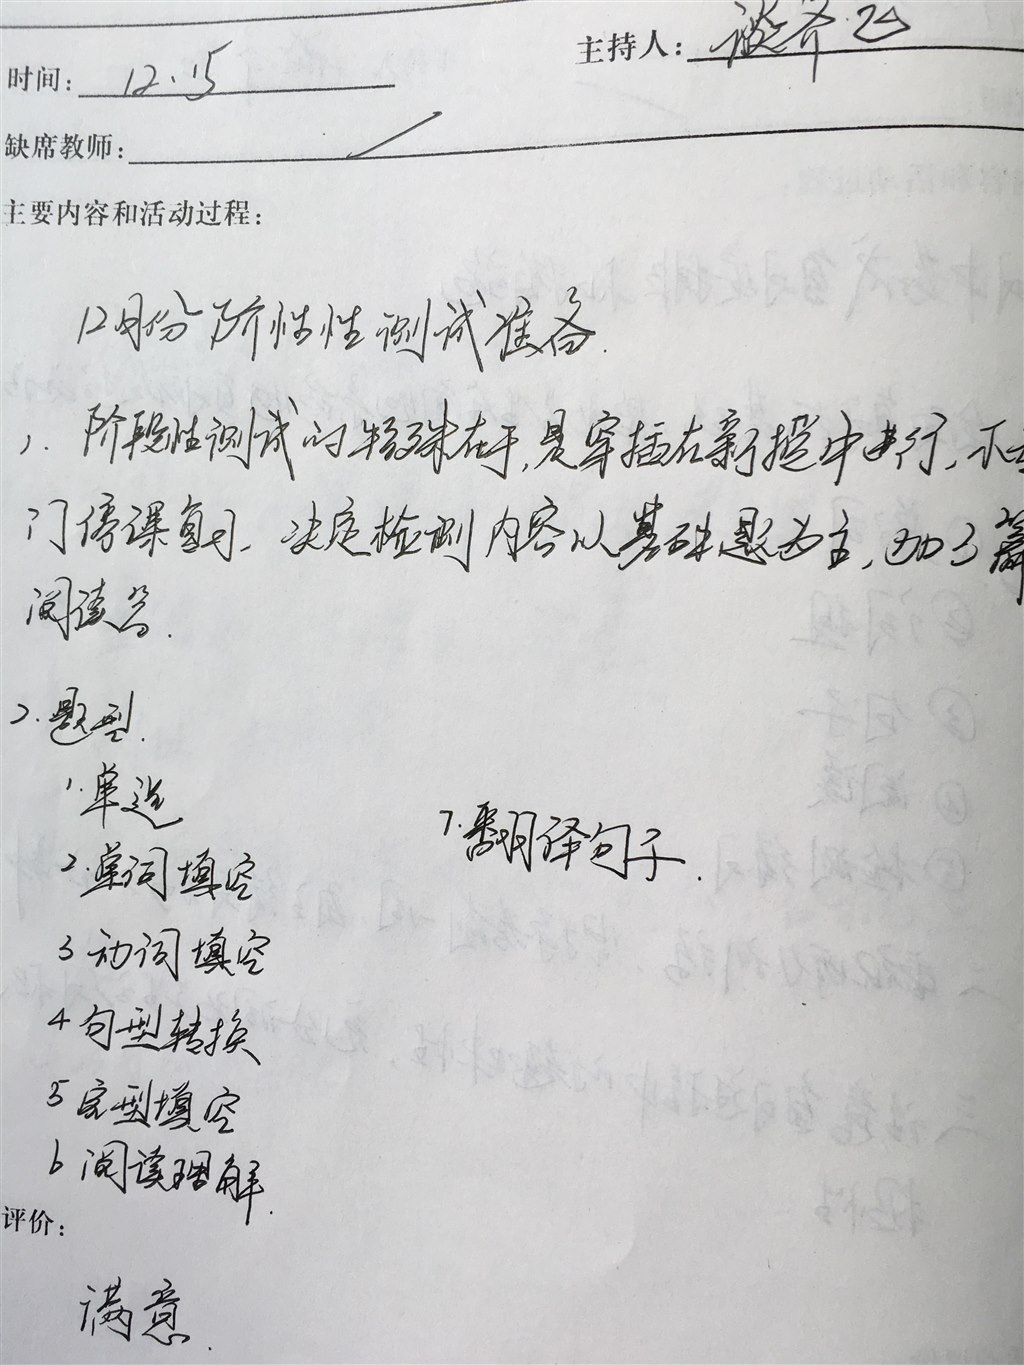 主持人：谈齐飞
时间：12.15
缺席教师：
主要内容和活动过程：
12月份阶性性测试准备.
1. 阶段性测试的特殊在于,是穿插在新授中进行,不专
门停课复习、决定检测内容以基础题为主,加3篇
阅读
2.题型.
1.单选
2.单词填空
3 动词填空
4 句型转换
5 完型填空
6 阅读理解.
7.翻译句子.
评价：
满意.